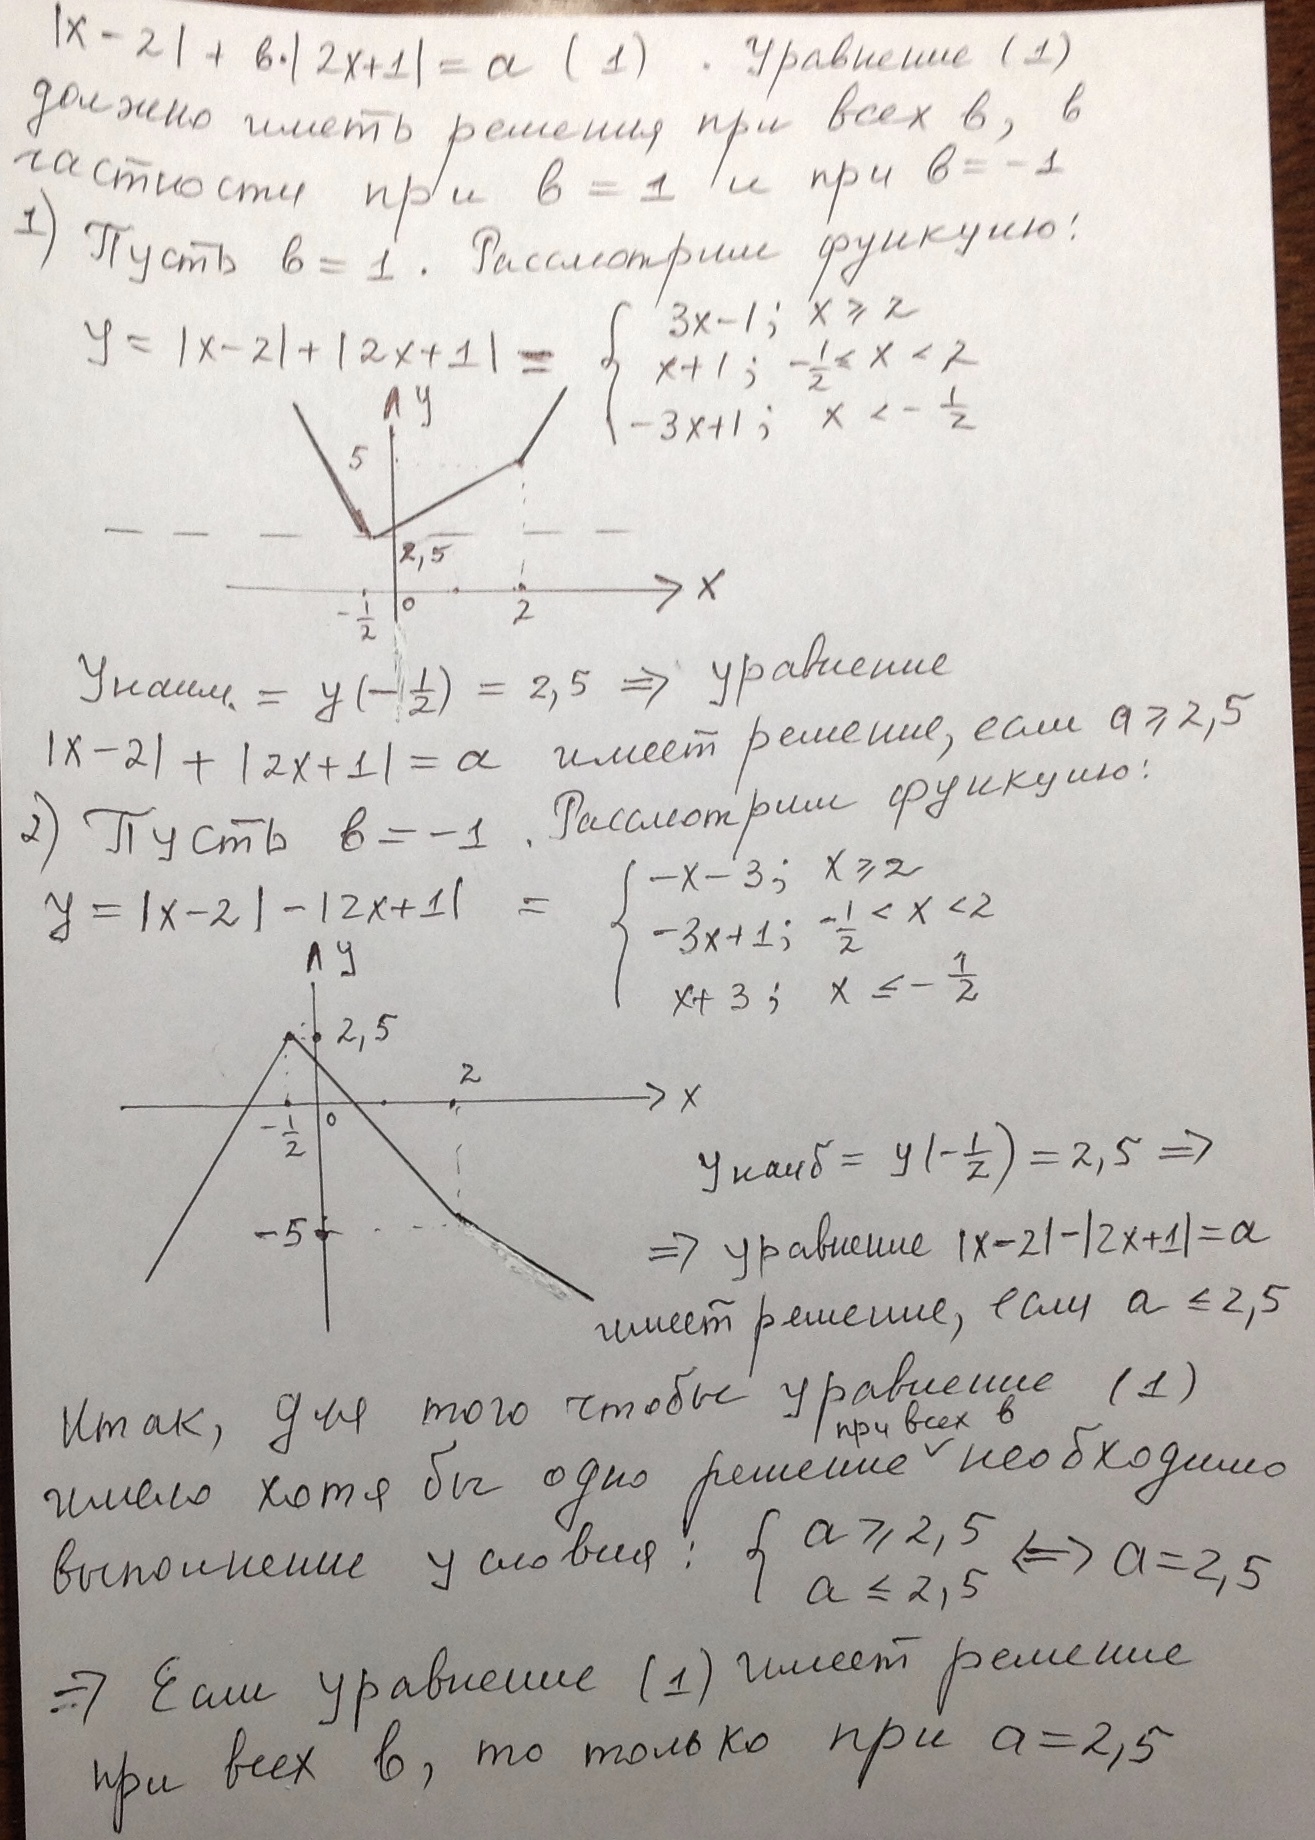 |x-2| + в·|2x+1| = a (1) . Уравнение (1)
должно иметь решения при всех в, в
частности при в = 1 и при в = -1
1) Пусть в = 1 . Рассмотрим функцию:
y = |x-2| + |2x+1| = { 3x-1; x ⩾ 2
x+1; -1/2 ≤ x < 2
-3x+1; x < -1/2
y
5
2,5
x
-1/2 0 2
Yнаим. = y(-1/2) = 2,5 ⇒ уравнение
|x-2| + |2x+1| = a имеет решение, если a ⩾ 2,5
2) Пусть в = -1 . Рассмотрим функцию:
y = |x-2| - |2x+1| = { -x-3; x ⩾ 2
-3x+1; -1/2 < x < 2
x+3; x ≤ -1/2
y
2,5
2
x
-1/2 0
Yнаиб = y(-1/2) = 2,5 ⇒
-5
⇒ уравнение |x-2|-|2x+1|=a
имеет решение, если a ≤ 2,5
Итак, для того чтобы уравнение (1)
при всех в
имело хотя бы одно решение ✓ необходимо
выполнение условия: { a ⩾ 2,5
a ≤ 2,5 ⇔ a = 2,5
⇒ Если уравнение (1) имеет решение
при всех в, то только при a = 2,5